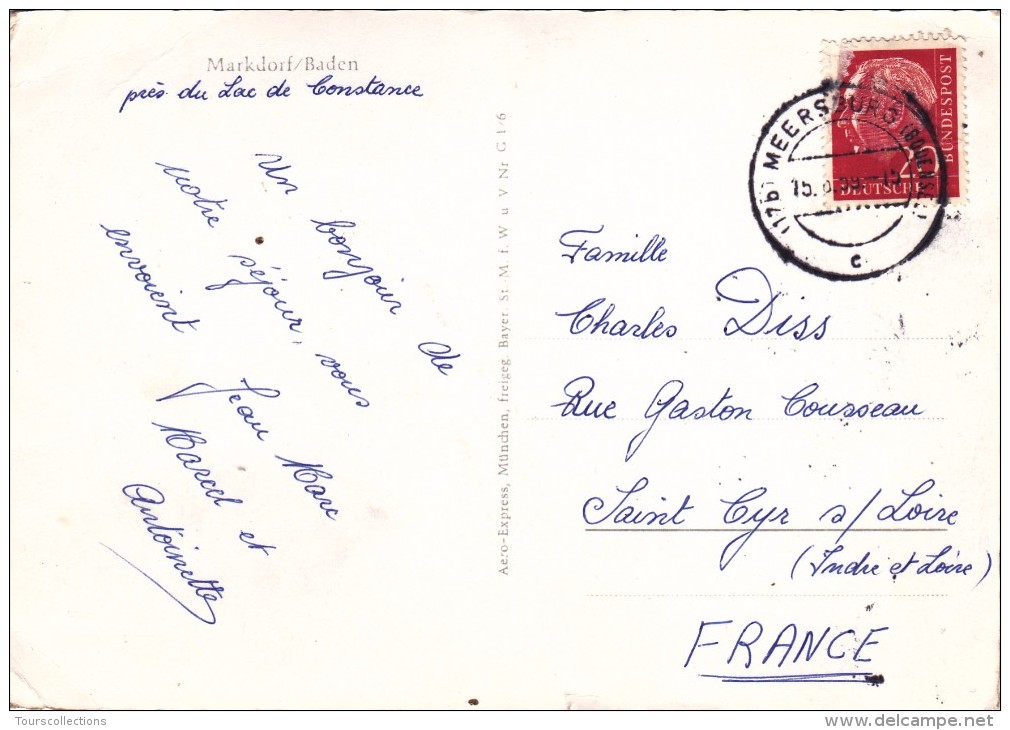 Markdorf/Baden
près du Lac de Constance
Un bonjour de
notre séjour, vous
envoient Jean Marc
Marcel et
Antoinette
Aero-Express, München, freigeg. Bayer. St.-M. f. W. u. V. Nr. G 1/6
BUNDESPOST
DEUTSCHE
(17b) MEERSBURG (BODENSEE)
c
Famille
Charles Diss
Rue Gaston Cousseau
Saint Cyr s/ Loire
(Indre et Loire)
FRANCE
Tourscollections
www.delcampe.net